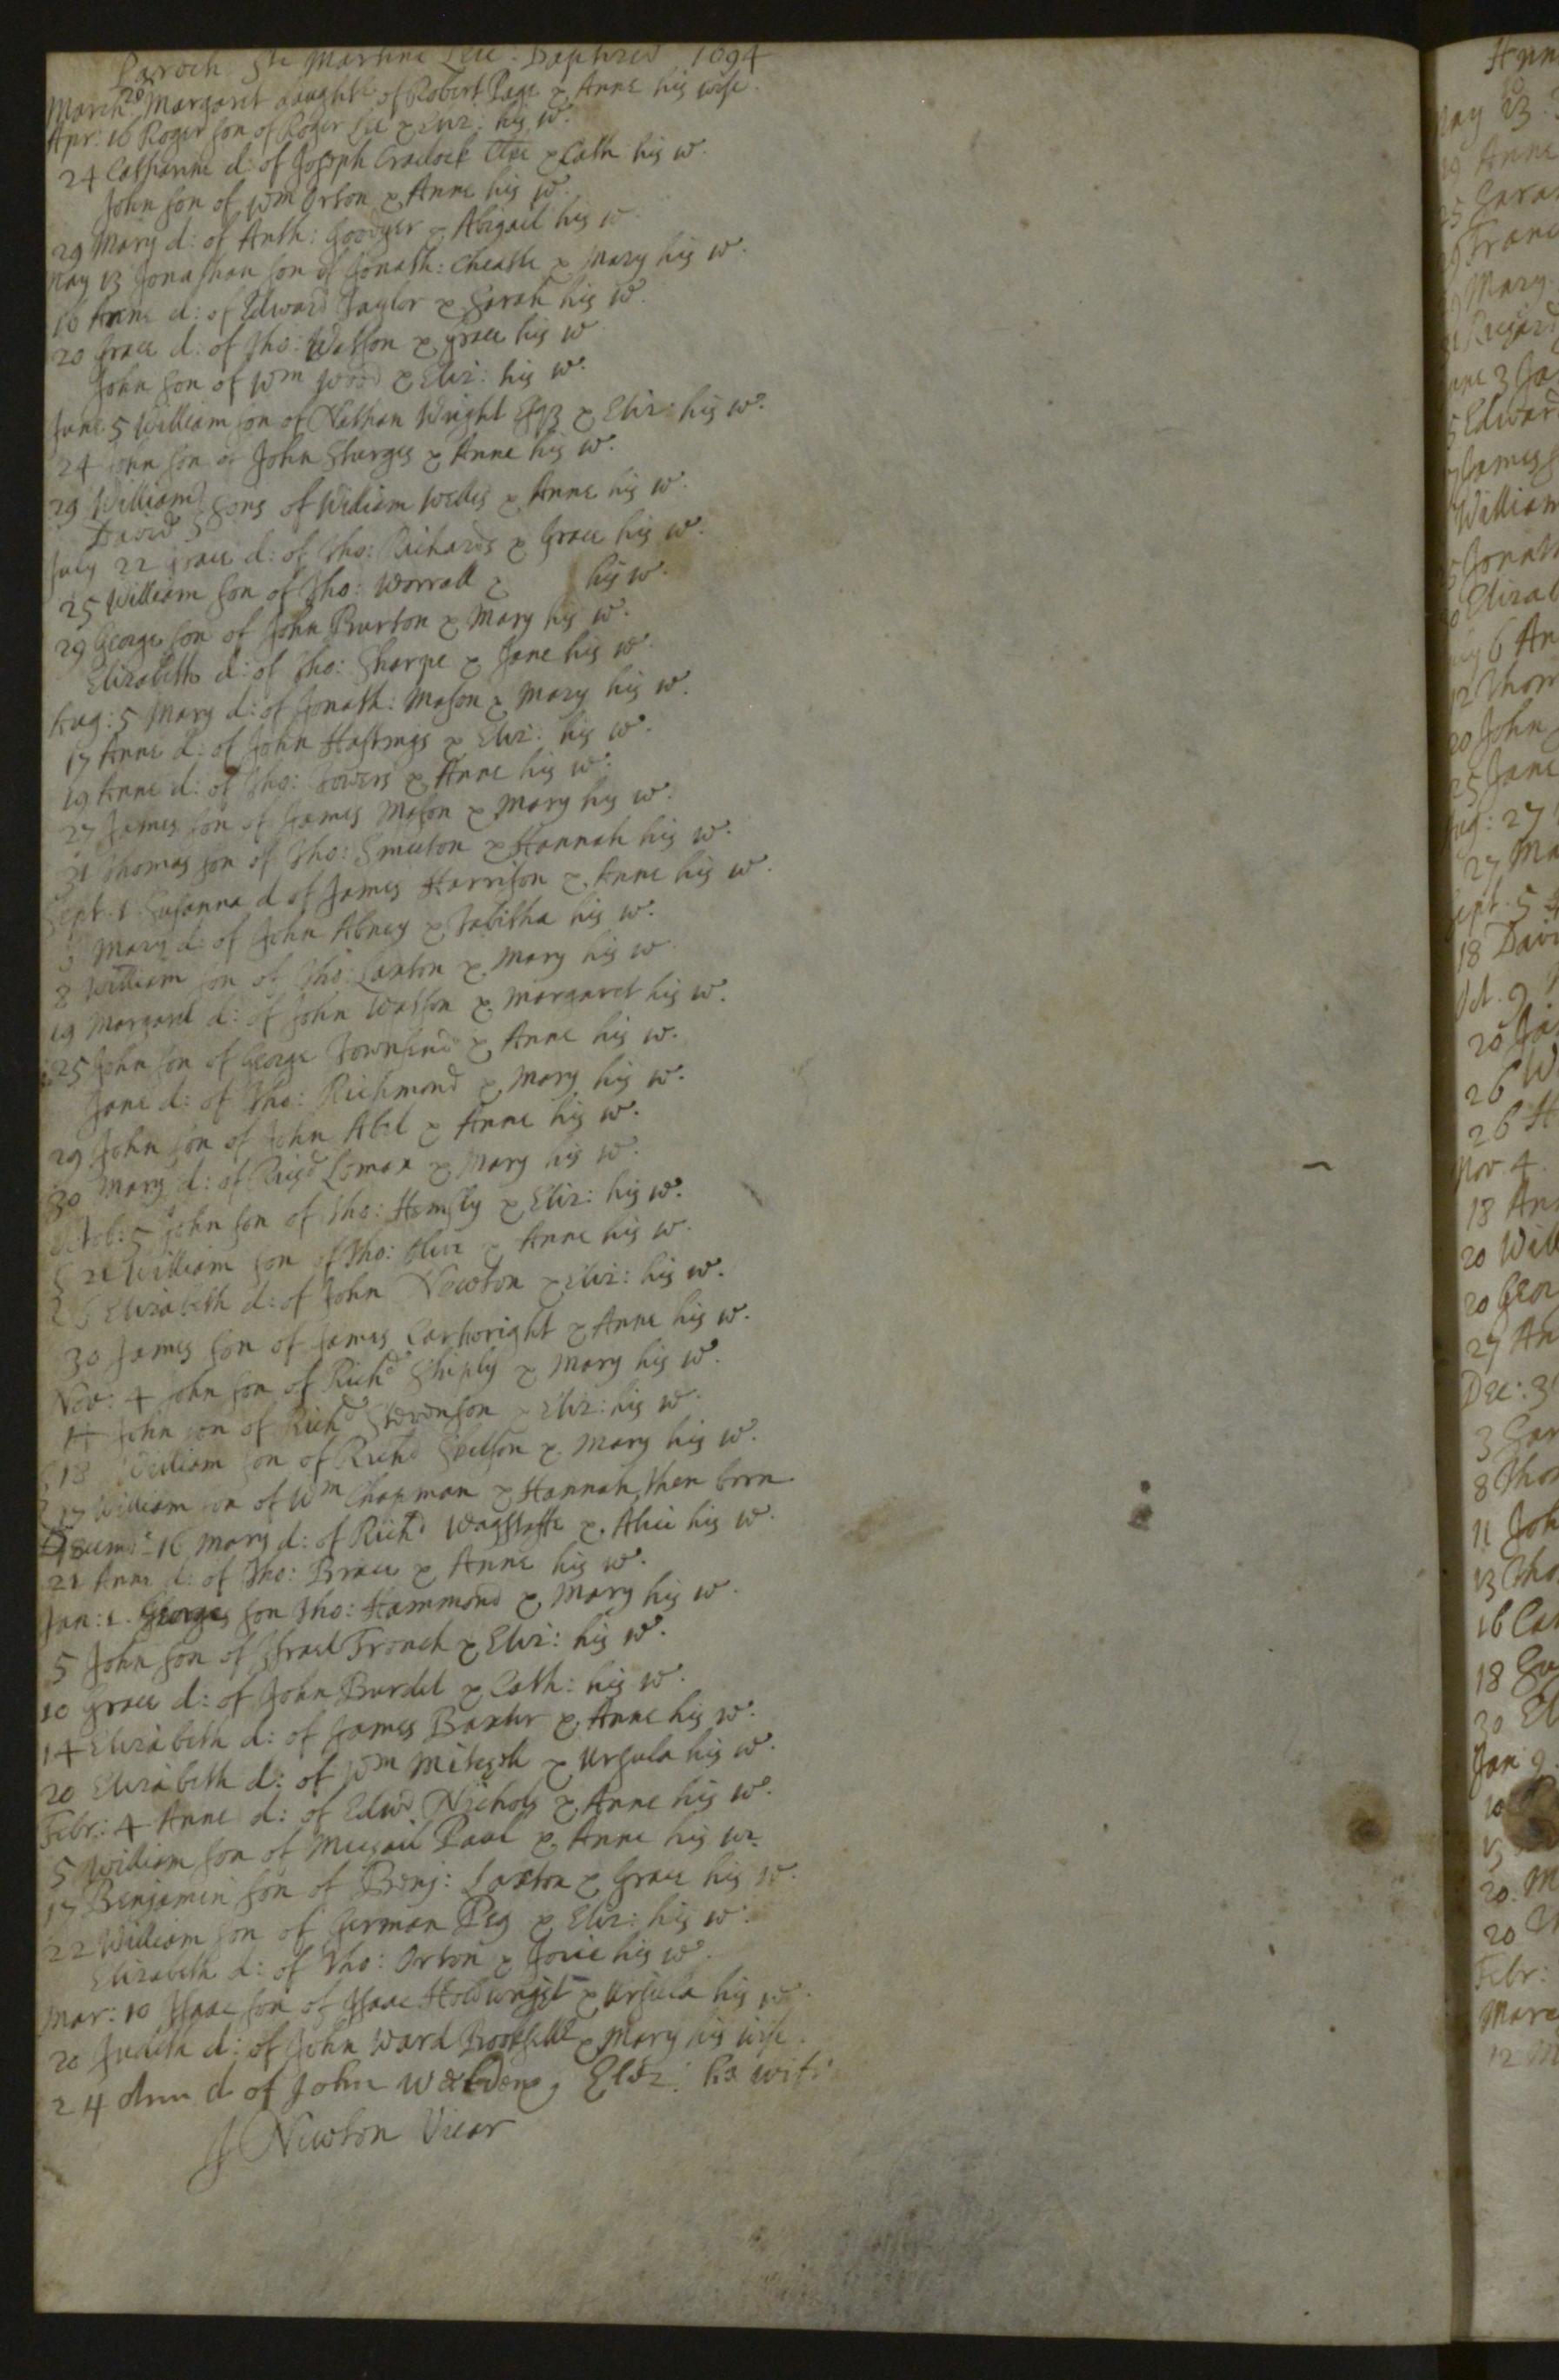 Paroch Sti Martini Leic. Baptized 1694
March 26 Margaret daughter of Robert Page & Anne his wife.
Apr: 16 Roger son of Roger Lee & Eliz: his w.
24 Catharine d: of Joseph Cradock & Cath his w.
John son of Wm Orton & Anne his w.
29 Mary d: of Anth: Goodyer & Abigail his w.
May 13 Jonathan son of Jonath: Cheatle & Mary his w.
16 Anne d: of Edward Taylor & Sarah his w.
20 Grace d: of Tho: Watson & Grace his w
John son of Wm Wood & Eliz: his w.
June 5 William son of Nathan Wright Esqr & Eliz: his w.
24 John son of John Sturges & Anne his w.
29 William
David } sons of William Welles & Anne his w.
July 22 Grace d: of Tho: Richards & Grace his w.
25 William son of Tho: Worrall & his w.
29 George son of John Burton & Mary his w.
Elizabeth d: of Tho: Sharpe & Jane his w.
Aug: 5 Mary d: of Jonath: Mason & Mary his w.
17 Anne d: of John Hastings & Eliz: his w.
19 Anne d: of Tho: Sowers & Anne his w.
27 James son of James Mason & Mary his w.
31 Thomas son of Tho: Smeeton & Hannah his w.
Sept. 1 Susanna d of James Harrison & Anne his w.
Mary d: of John Abney & Tabitha his w.
8 William son of Tho: Laxton & Mary his w
19 Margaret d: of John Watson & Margaret his w.
25 John son of George Townsend & Anne his w.
Jane d: of Tho: Richmond & Mary his w.
29 John son of John Abel & Anne his w.
30 Mary d: of Richd Lomax & Mary his w.
Octob: 5 John son of Tho: Hemsly & Eliz: his w.
21 William son of Tho: & Anne his w.
Elizabeth d: of John Newton & Eliz: his w.
30 James son of James Cartwright & Anne his w.
Nov: 4 John son of Richd Shiply & Mary his w.
14 John son of Richd Stevenson & Eliz: his w.
18 William son of Richd Shelson & Mary his w.
17 William son of Wm Chapman & Hannah, then born
Decembr 16 Mary d: of Richd Wagstaffe & Alice his w.
21 Anne d: of Tho: Brace & Anne his w.
Jan: 1. George son Tho: Hammond & Mary his w.
5 John son of Israel French & Eliz: his w.
10 Grace d: of John Burdet & Cath: his w.
14 Elizabeth d: of James Baxter & Anne his w.
20 Elizabeth d: of Wm & Ursula his w.
Febr: 4 Anne d: of Edwd Nichols & Anne his w.
5 William son of Michael Paul & Anne his w.
17 Benjamin son of Benj: Laxton & Grace his w.
22 William son of German Peg & Eliz: his w.
Elizabeth d: of Tho: Orton & his w.
Mar: 10 Isaac son of Isaac & Ursula his w.
20 Judith d: of John Ward Bookseller & Mary his wife.
24 Ann d of John & Eliz: his wife
J Newton Vicar
May 13
29 Anne
25 Sara
Mary
June 3
5 Edward
7 James
William
Jonath
Elizab
July 6 An
12 Thom
20 John
25 Jane
Aug: 27
27 Ma
Sept. 5
18 Davi
Oct. 9
20 Ja
26 W
26 H
Nov. 4
18 An
20 Will
20 Geor
27 An
Dec: 3
3 Sar
8 Tho
11 Joh
13 Tho
16 Cat
18 Su
30 El
Jan 9
10
13
20. M
20
Febr:
Marc
12 M